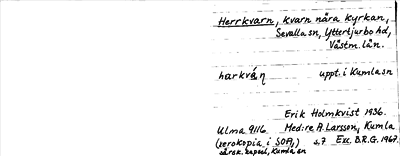 Herrkvarn, kvarn nära kyrkan,
Sevalla sn, Yttertjurbo hd,
Västm. län.
harkvá̱ṇ uppt. i Kumla sn
Erik Holmkvist 1936.
Ulma 9116 Med: re A. Larsson, Kumla
(xerokopia i SOA,) s,7 Exc. B.R.G. 1967.
särsk. kapsel, Kumla sn